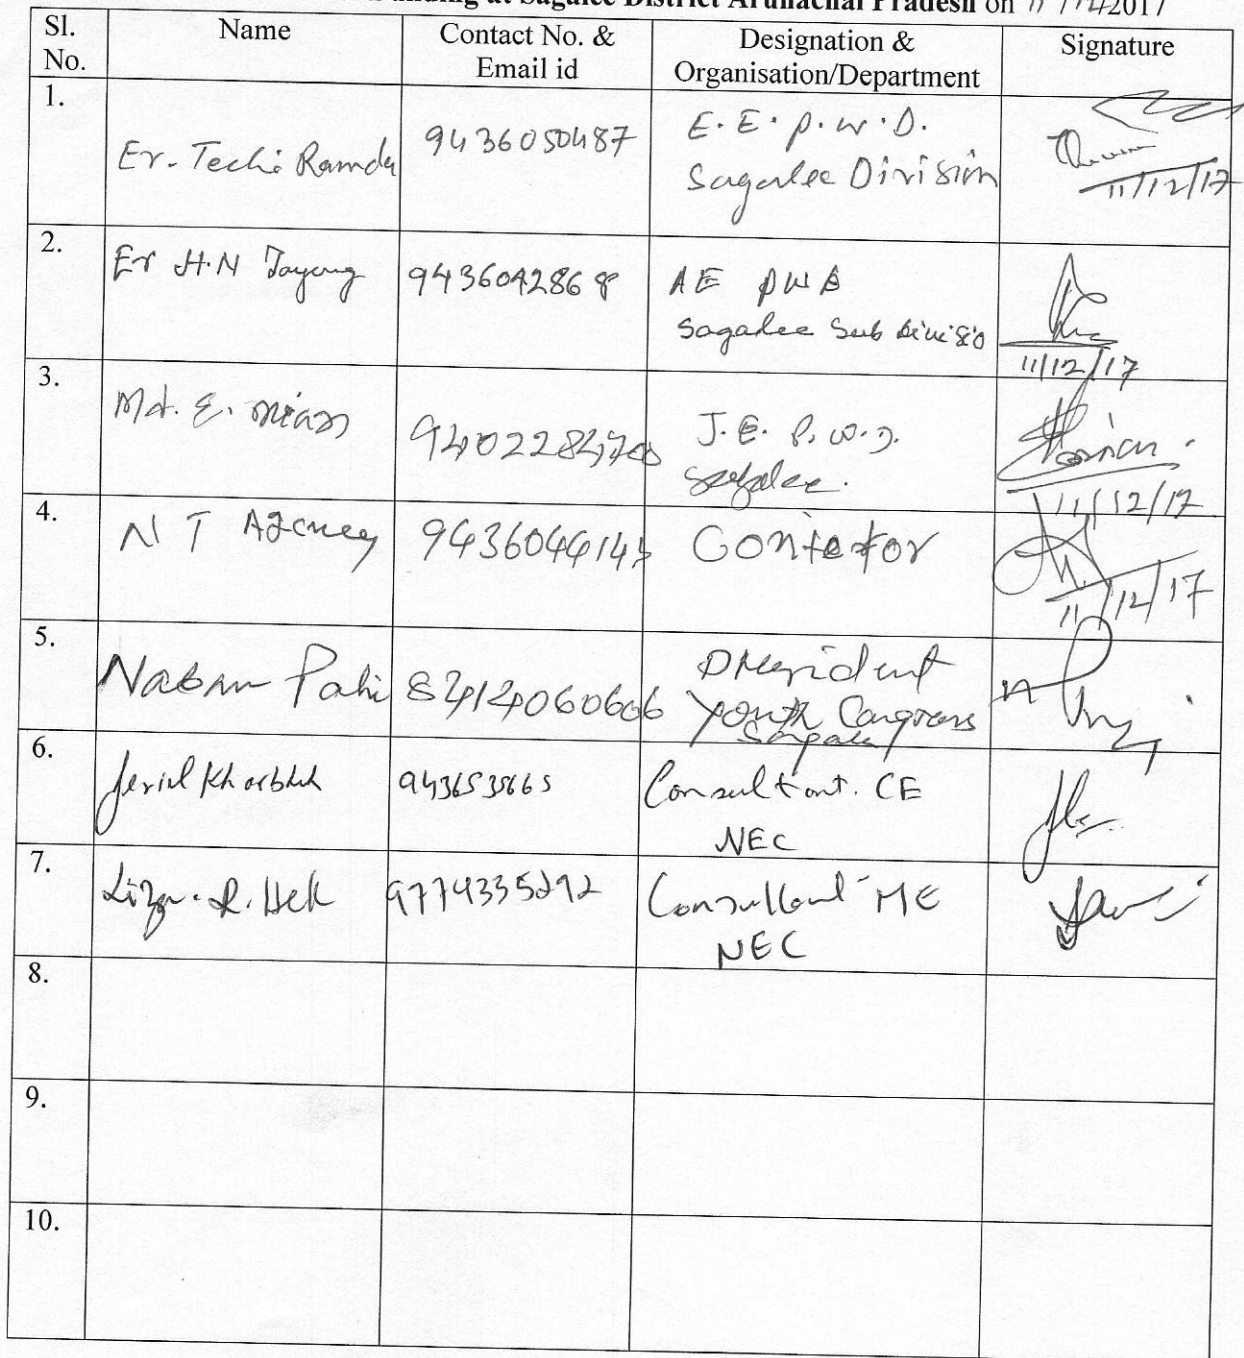 at Sagalee District Arunachal Pradesh on 11/12/2017
Sl. No. Name Contact No. & Email id Designation & Organisation/Department Signature
1. Er. Techi Ramda 9436050487 E.E. P.W.D.
Sagalee Division
11/12/17
2. Er H.N Tayeng 9436042868 AE PWD
Sagalee Sub Divisio
11/12/17
3. Md. E. 9402284700 J.E. P.W.D.
Sagalee.
11/12/17
4. N T Agency 943604414 Contector
11/12/17
5. Nabam Pahi 8414060606 President
Youth Congress
Sagalee
6. Kharbhih 9436535665 Consultant. CE
NEC
7. R. Hek 9774335292 Consultant ME
NEC
8.
9.
10.